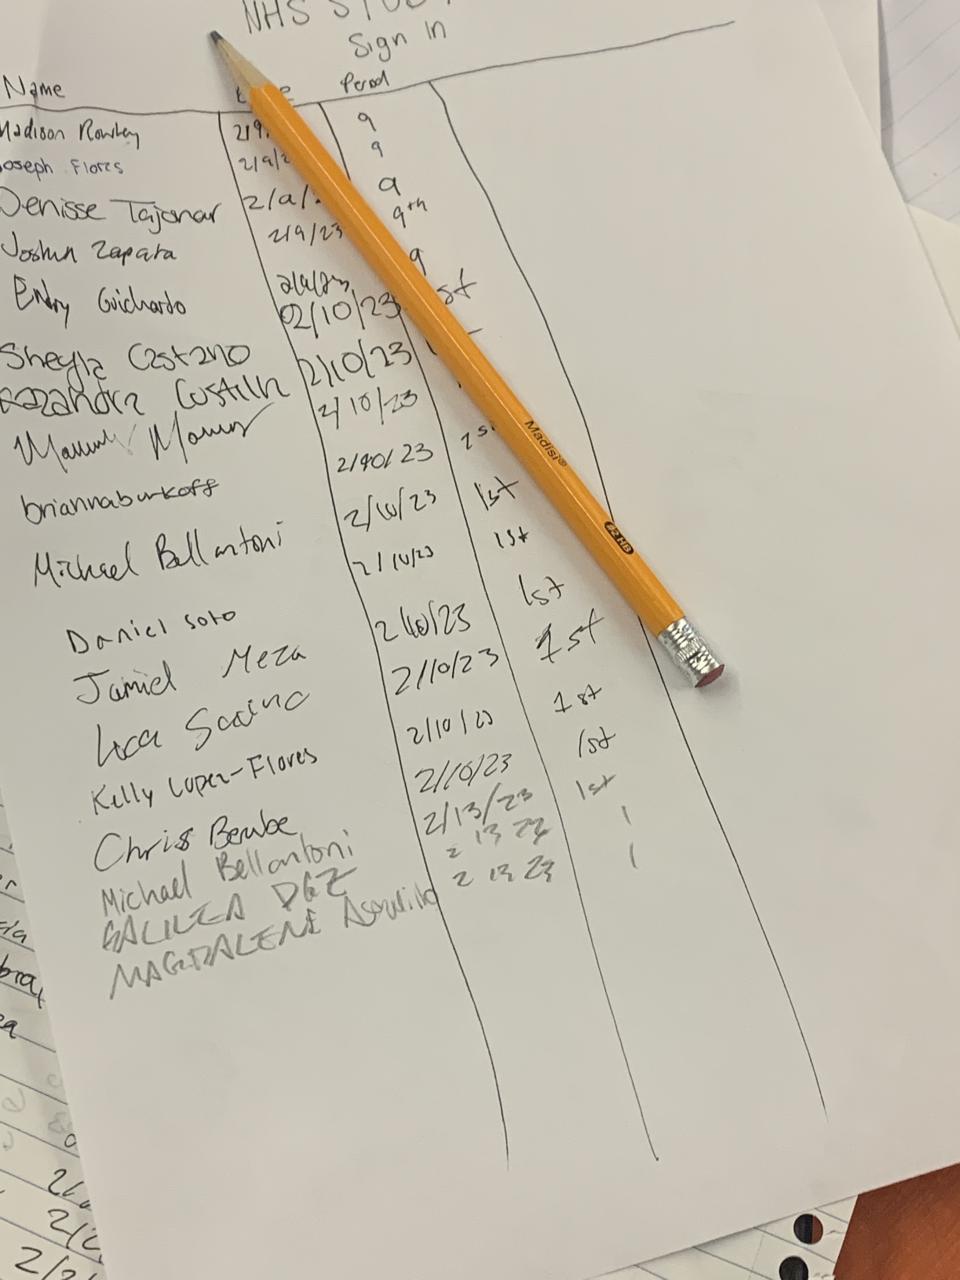 NHS
Sign In
Name Period
Madison Rowley 2/9 9
Joseph Flores 2/9/2 9
Denisse Tajonar 2/9/ 9
Joshua Zapata 2/9/23 9th
Enlly Guichardo 2/9/23 9
Sheyla Castano 02/10/23 st
2/10/23
2/10/23
briannaburkoff 2/10/23 1s
Michael Bellantoni 2/10/23 1st
Daniel Soto 2/10/23 1st
Jamiel Meza 2/10/23 1st
Luca 2/10/23 1st
Kelly Lopez-Flores 2/10/23 1st
Chris Berube 2/10/23 1st
Michael Bellantoni 2/13/23 1st
GALILEA DGZ 2 13 23 1
MAGDALENE 2 13 23 1
Madisi®
#2 HB
2/2
2/2